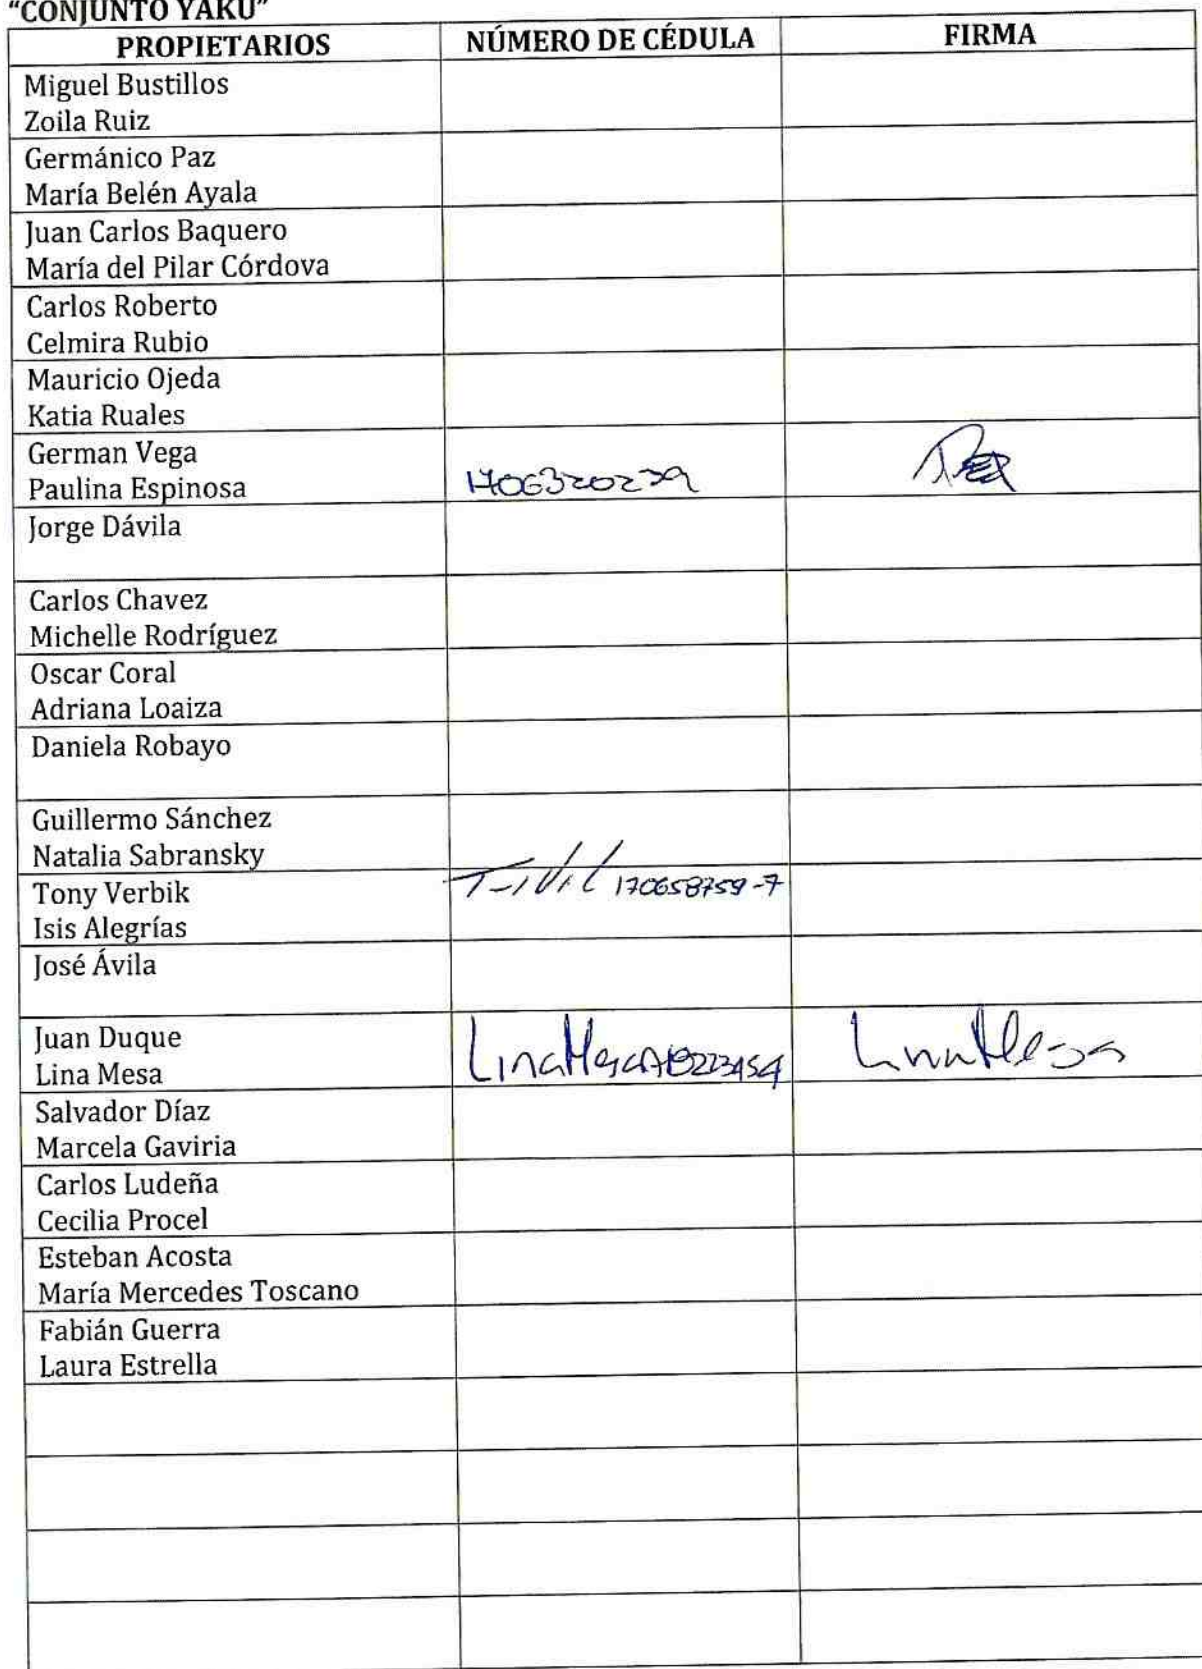 “CONJUNTO YAKU”
PROPIETARIOS NÚMERO DE CÉDULA FIRMA
Miguel Bustillos
Zoila Ruiz
Germánico Paz
María Belén Ayala
Juan Carlos Baquero
María del Pilar Córdova
Carlos Roberto
Celmira Rubio
Mauricio Ojeda
Katia Ruales
German Vega
Paulina Espinosa 1706320239
Jorge Dávila
Carlos Chavez
Michelle Rodríguez
Oscar Coral
Adriana Loaiza
Daniela Robayo
Guillermo Sánchez
Natalia Sabransky
Tony Verbik 170658759-7
Isis Alegrías
José Ávila
Juan Duque
Lina Mesa Lina Mesa Lina Mesa
Salvador Díaz
Marcela Gaviria
Carlos Ludeña
Cecilia Procel
Esteban Acosta
María Mercedes Toscano
Fabián Guerra
Laura Estrella